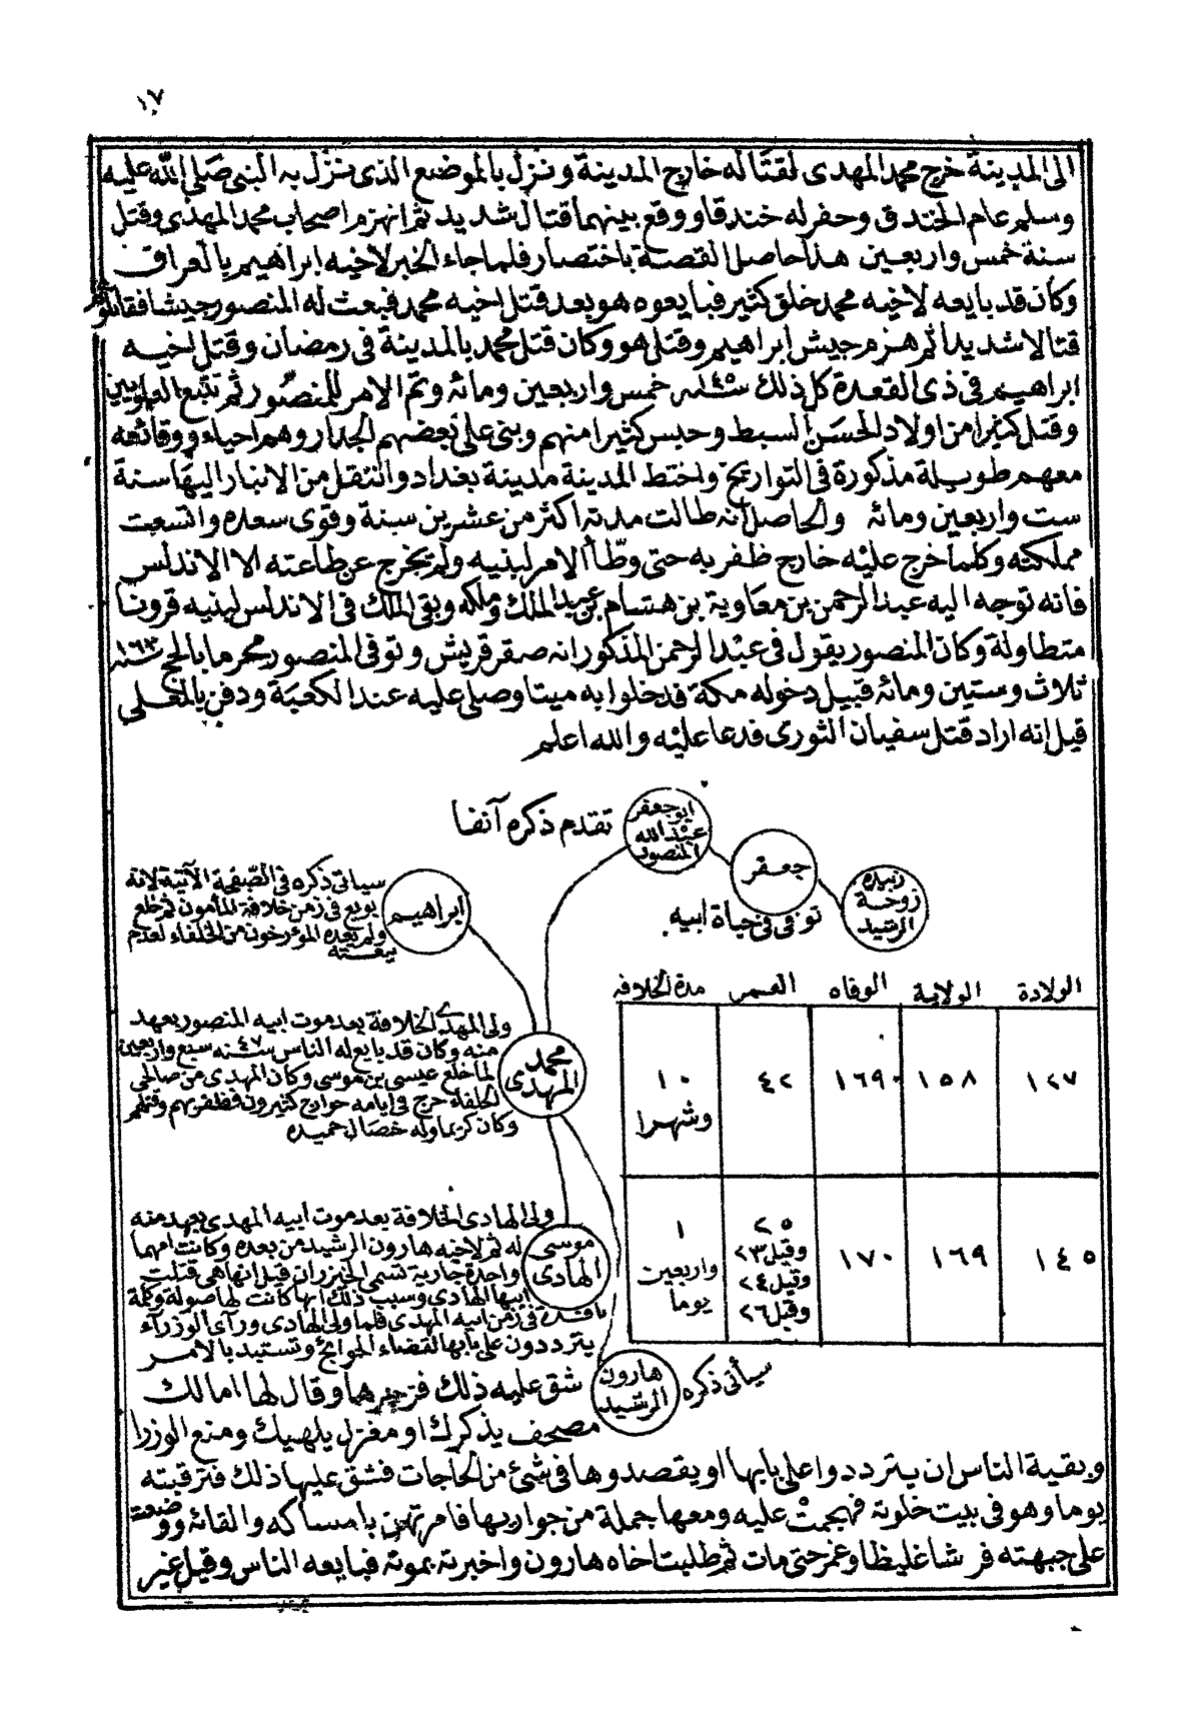 ١٧
الى المدينة خرج محمد المهدى لقتاله خارج المدينة ونزل بالموضع الذى نزل به النبى صلى الله عليه
وسلم عام الخندق وحفر له خندقا ووقع بينهما قتال شديد ثم انهزم اصحاب محمد المهدى وقتل
سنة خمس واربعين هذا حاصل القصة باختصار فلما جاء الخبر لاخيه ابراهيم بالعراق
وكان قد بايعه لاخيه محمد خلق كثير فبايعوه هو بعد قتل اخيه محمد فبعث له المنصور جيشا فقاتلوه
قتالا شديدا ثم هزم جيش ابراهيم وقتل هو وكان قتل محمد بالمدينة فى رمضان وقتل اخيه
ابراهيم فى ذى القعدة كل ذلك سنة ١٤٥ خمس واربعين ومائه وتم الامر للمنصور ثم تتبع العلويين
وقتل كثيرا من اولاد الحسن السبط وحبس كثيرا منهم وبنى على بعضهم الجدار وهم احياء ووقائعه
معهم طويلة مذكورة فى التواريخ واختط المدينة مدينة بغداد وانتقل من الانبار اليها سنة
ست واربعين ومائه والحاصل انه طالت مدته اكثر من عشرين سنة وقوى سعده واتسعت
مملكته وكلما خرج عليه خارج ظفر به حتى وطّأ الامر لبنيه ولم يخرج عن طاعته الا الاندلس
فانه توجه اليه عبد الرحمن بن معاوية بن هشام بن عبد الملك وملكه وبقى الملك فى الاندلس لبنيه قرونا
متطاولة وكان المنصور يقول فى عبد الرحمن المذكور انه صقر قريش وتوفى المنصور محرما بالحج سنة ١٦٣
ثلاث وستين ومائه قبيل دخوله مكة فدخلوا به ميتا وصلى عليه عند الكعبة ودفن بالمعلى
قيل انه اراد قتل سفيان الثورى فدعا عليه والله اعلم
ابو جعفر عبد الله المنصور
تقدم ذكره آنفا
جعفر
توفى فى حياة ابيه
زبيده زوجة الرشيد
ابراهيم
سياتى ذكره فى الصفحة الآتية لانه
بويع فى زمن خلافة المأمون ثم خلع
ولم يعده المؤرخون من الخلفاء لعدم
بيعته
الولادة الولاية الوفاه العمر مدة الخلافه
١٢٧ ١٥٨ ١٦٩ ٤٢ ١٠ وشهرا
١٤٥ ١٦٩ ١٧٠ ٢٥ وقيل ٢٣ وقيل ٢٤ وقيل ٢٦ ١ واربعين يوما
محمد المهدى
ولى المهدى الخلافة بعد موت ابيه المنصور بعهد
منه وكان قد بايع له الناس سنه ٤٧ سبع واربعين
لما خلع عيسى بن موسى وكان المهدى من صالحى
الخلفاء خرج فى ايامه خوارج كثيرون فظفر بهم وقتلهم
وكان كريما وله خصال حميده
موسى الهادى
ولى الهادى الخلافة بعد موت ابيه المهدى بعهد منه
له ثم لاخيه هارون الرشيد من بعده وكانت امهما
واحدة جارية تسمى الخيزران قيل انها هى قتلت
ابنها الهادى وسبب ذلك انها كانت لها صولة وكلمة
نافذة فى زمن ابيه المهدى فلما ولى الهادى ورآى الوزرآء
يترددون على بابها لقضاء الحوائج وتستبد بالامر
شق عليه ذلك فزجرها وقال لها اما لك
مصحف يذكرك او مغزل يلهيك ومنع الوزرا
هارون الرشيد
سيأتى ذكره
وبقية الناس ان يترددوا على بابها او يقصدوها فى شئ من الحاجات فشق عليها ذلك فترقبته
يوما وهو فى بيت خلوته فهجمت عليه ومعها جملة من جواريها فامرتهن بامساكه والقائه ووضعت
على جبهته فرشا غليظا وغمز حتى مات ثم طلبت اخاه هارون واخبرته بموته فبايعه الناس وقيل غير